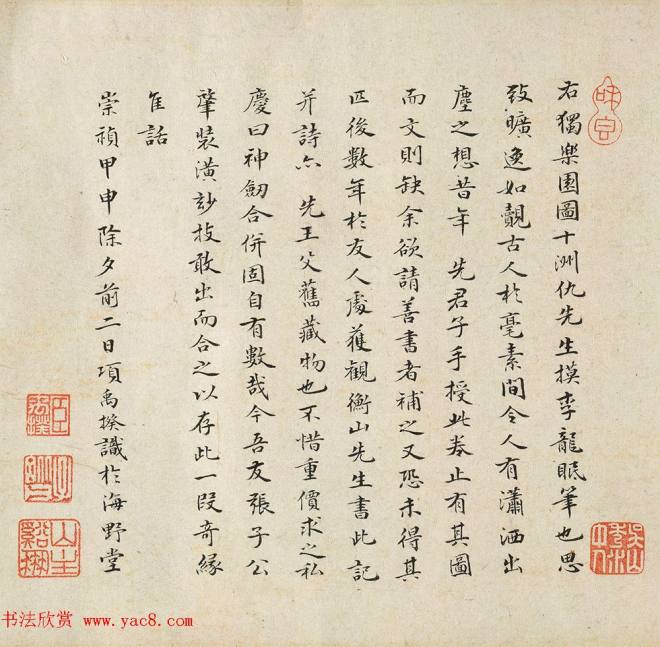 右獨樂園圖十洲仇先生摸李龍眠筆也思
致曠逸如覿古人於毫素間令人有瀟洒出
塵之想昔年 先君子手授此卷止有其圖
而文則缺余欲請善書者補之又恐未得其
匹後數年於友人處獲觀衡山先生書此記
并詩亦 先王父舊藏物也不惜重價求之私
慶曰神劒合併固自有數哉今吾友張子公
肇裝潢玅技敢出而合之以存此一段奇緣
隹話
崇禎甲申除夕前二日項禹揆識於海野堂
书法欣赏 www.yac8.com